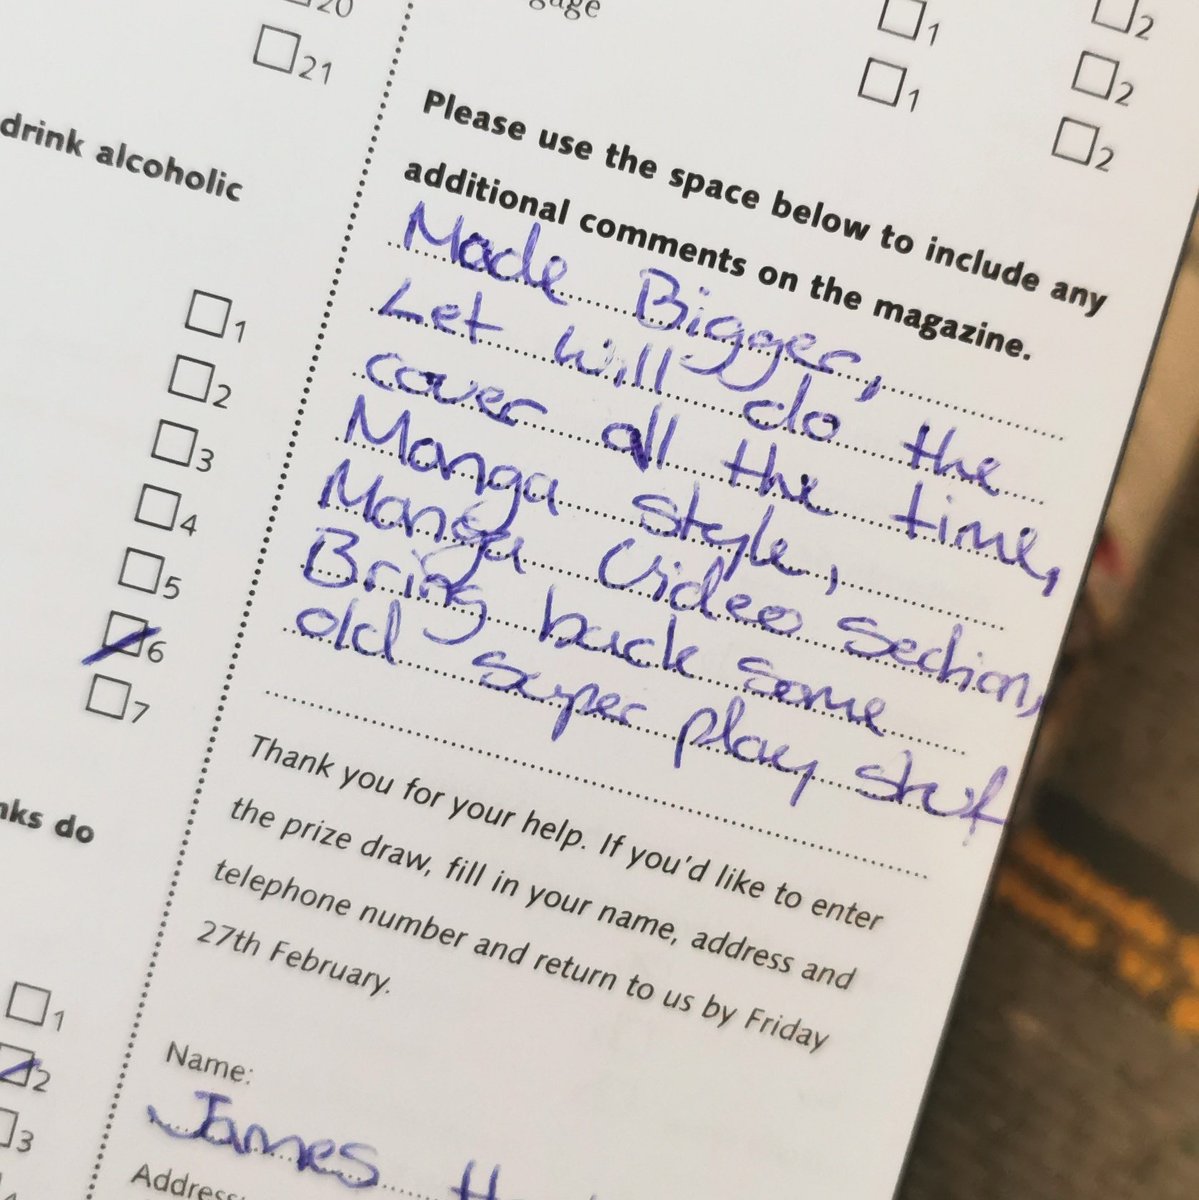 20
21
drink alcoholic
1
2
3
4
5
6
7
nks do
1
2
3
gage
1
2
1
2
2
Please use the space below to include any
additional comments on the magazine.
Made Bigger,
Let Will do the
cover all the time,
Manga style,
Manga Video section,
Bring back some
old super play stuf
Thank you for your help. If you'd like to enter
the prize draw, fill in your name, address and
telephone number and return to us by Friday
27th February.
Name:
James
Address: